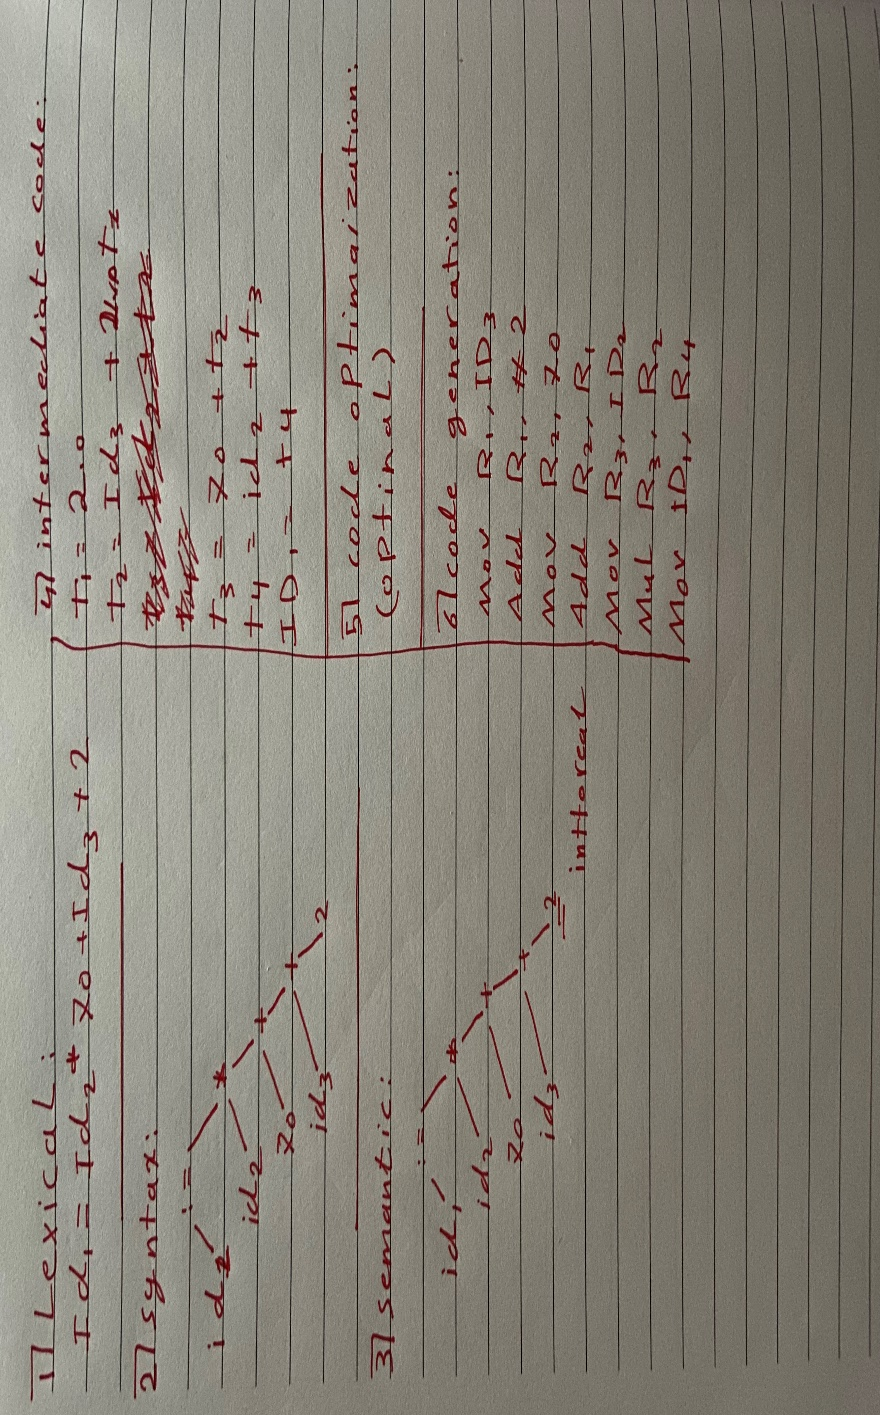 1) Lexical:
Id1 = Id2 * 70 + Id3 + 2
2) syntax:
:=
id1
*
id2
+
70
+
id3
2
3) semantic:
:=
id1
*
id2
+
70
+
id3
2
inttoreal
4) intermediate code:
t1 = 2.0
t2 = Id3 + t1
t3 = 70 + t2
t4 = id2 + t3
ID1 = t4
5) code optimaization:
(optinal)
6) code generation:
Mov R1, ID3
Add R1, #2
Mov R2, 70
Add R2, R1
Mov R3, ID2
Mul R3, R2
Mov ID1, R4